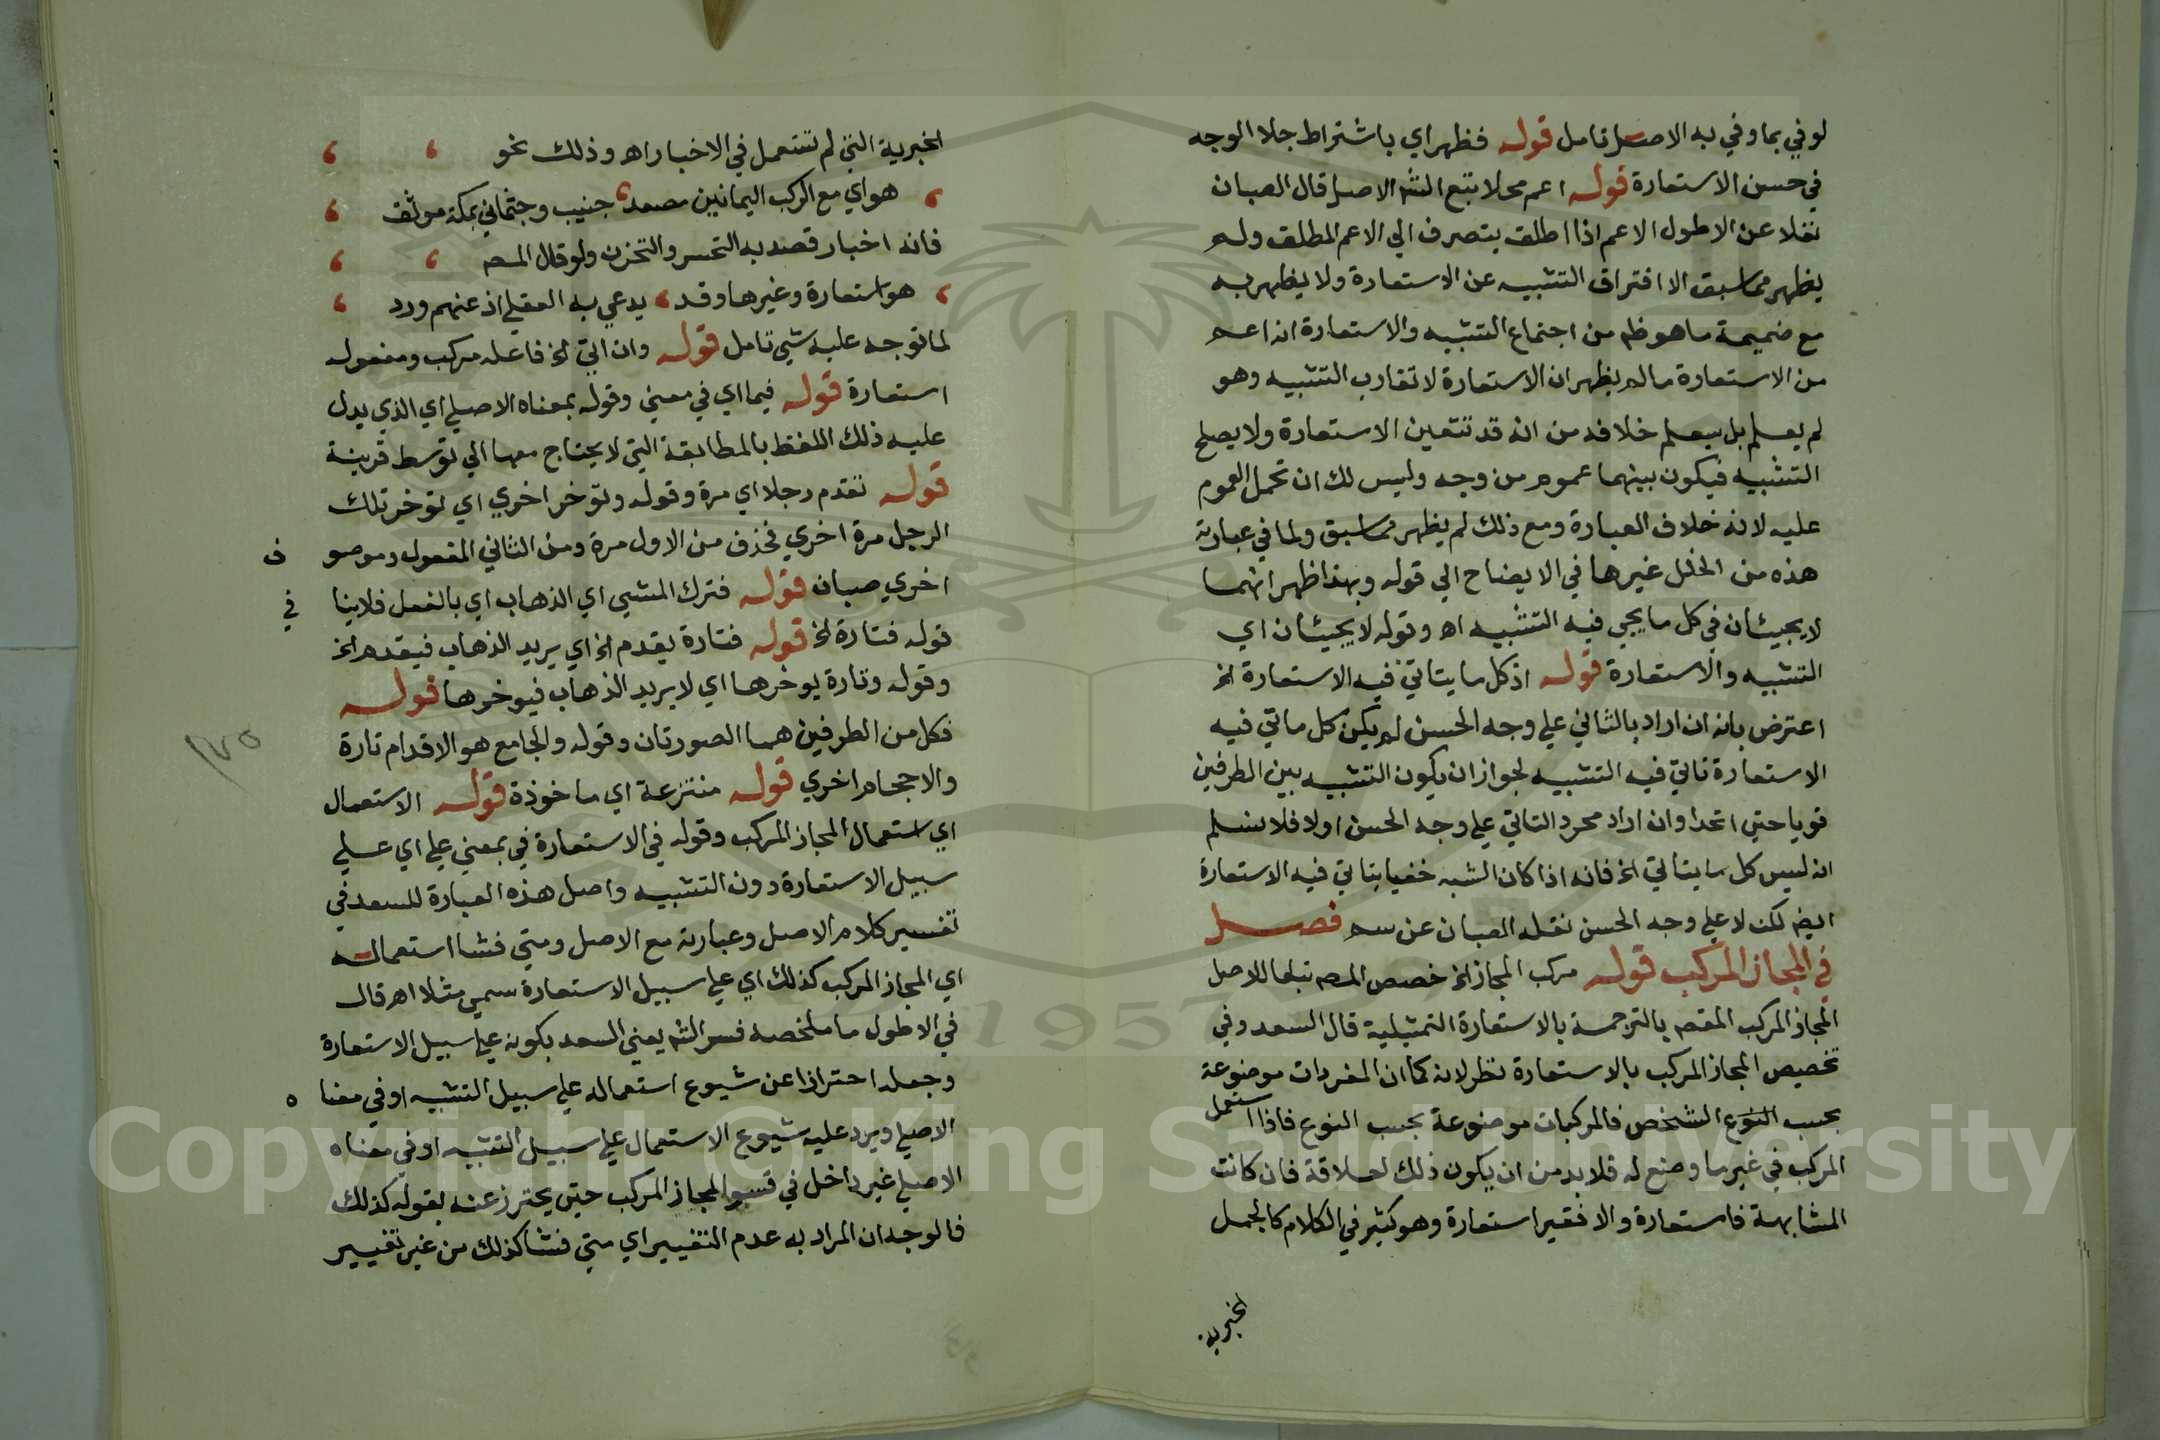 لوفي بما وفي به الاصل تامل قوله فظهر اي باشتراط جلا الوجه
في حسن الاستعارة قوله اعم محلا بتبع الشم الاصل قال الصبان
نقلا عن الاطول الاعم اذا اطلق يتصرف الي الاعم المطلق ولم
يظهر مما سبق الا افتراق التشبيه عن الاستعارة ولا يظهر به
مع ضميمة ما هو ظم من اجتماع التشبيه والاستعارة انه اعم
من الاستعارة ما لم يظهر ان الاستعارة لا تفارق التشبيه وهو
لم يعلم بل سيعلم خلافه من انه قد تتعين الاستعارة ولا يصلح
التشبيه فيكون بينهما عموم من وجه وليس لك ان تحمل العموم
عليه لانه خلاف العبارة ومع ذلك لم يظهر مما سبق ولما في عبارته
هذه من الخلل غيرها في الايضاح الي قوله وبهذا ظهر انهما
لا يجيئان في كل ما يجي فيه التشبيه اه وقوله لا يجيئان اي
التشبيه والاستعارة قوله اذ كل ما يتاتي فيه الاستعارة الخ
اعترض بانه ان اراد بالتاتي علي وجه الحسن لم يكن كل ما تاتي فيه
الاستعارة تاتي فيه التشبيه لجواز ان يكون التشبيه بين الطرفين
قويا حتي اتحدا وان اراد مجرد التاتي علي وجه الحسن اولا فلا نسلم
انه ليس كل ما يتاتي الخ فانه اذا كان الشبه خفيا يتاتي فيه الاستعارة
ايضم لكن لا علي وجه الحسن نقله الصبان عن سم فصل
في المجاز المركب قوله مركب المجاز الخ خصص المصم تبعا للاصل
المجاز المركب المقصم بالترجمة بالاستعارة التمثيلية قال السعد وفي
تخصيص المجاز المركب بالاستعارة نظر لانه كما ان المفردات موضوعة
بحسب النوع الشخص فالمركبات موضوعة بحسب النوع فاذا استعمل
المركب في غير ما وضع له فلا بد من ان يكون ذلك لعلاقة فان كانت
المشابهة فاستعارة والا فغير استعارة وهو كثير في الكلام كالجمل
الخبرية
الخبرية التي لم تستعمل في الاخبار اه وذلك نحو
هواي مع الركب اليمانين مصعد جنيب وجثماني بمكة موثق
فانه اخبار قصد به التحسر والتحزن ولو قال المصم
هو استعارة وغيرها وقد يدعي به العقلي اذ عنهم ورد
لما توجه عليه شي تامل قوله وان اتي الخ فاعله مركب ومفعوله
استعارة قوله فيما اي في معني وقوله بمعناه الاصلي اي الذي يدل
عليه ذلك اللفظ بالمطابقة التي لا يحتاج معها الي توسط قرينة
قوله تقدم رجلا اي مرة وقوله وتوخر اخري اي توخر تلك
الرجل مرة اخري فحذف من الاول مرة ومن الثاني المفعول وموصو ف
اخري صبان قوله فترك المشي اي الذهاب اي بالفعل فلا ينا في
قوله فتارة الخ قوله فتارة يقدم الخ اي يريد الذهاب فيقدم الخ
وقوله وتارة يوخرها اي لا يريد الذهاب فيوخرها قوله
فكل من الطرفين هما الصورتان وقوله والجامع هو الاقدام تارة
والاحجام اخري قوله منتزعة اي ماخوذة قوله الاستعمال
اي استعمال المجاز المركب وقوله في الاستعارة في بمعني علي اي علي
سبيل الاستعارة دون التشبيه واصل هذه العبارة للسعد في
تفسير كلام الاصل وعبارته مع الاصل ومتي فشا استعماله
اي المجاز المركب كذلك اي علي سبيل الاستعارة سمي مثلا اه قال
في الاطول ما ملخصه فسر الشم يعني السعد بكونه علي سبيل الاستعارة
وجعله احترازا عن شيوع استعماله علي سبيل التشبيه او في معنا ه
الاصلي ويرد عليه شيوع الاستعمال علي سبيل التشبيه او في معناه
الاصلي غير داخل في قسم المجاز المركب حتي يحترز عنه بقوله كذلك
فالوجه ان المراد به عدم التغيير اي متي فشا كذلك من غير تغيير
١٧٥
1957
Copyright © King Saud University